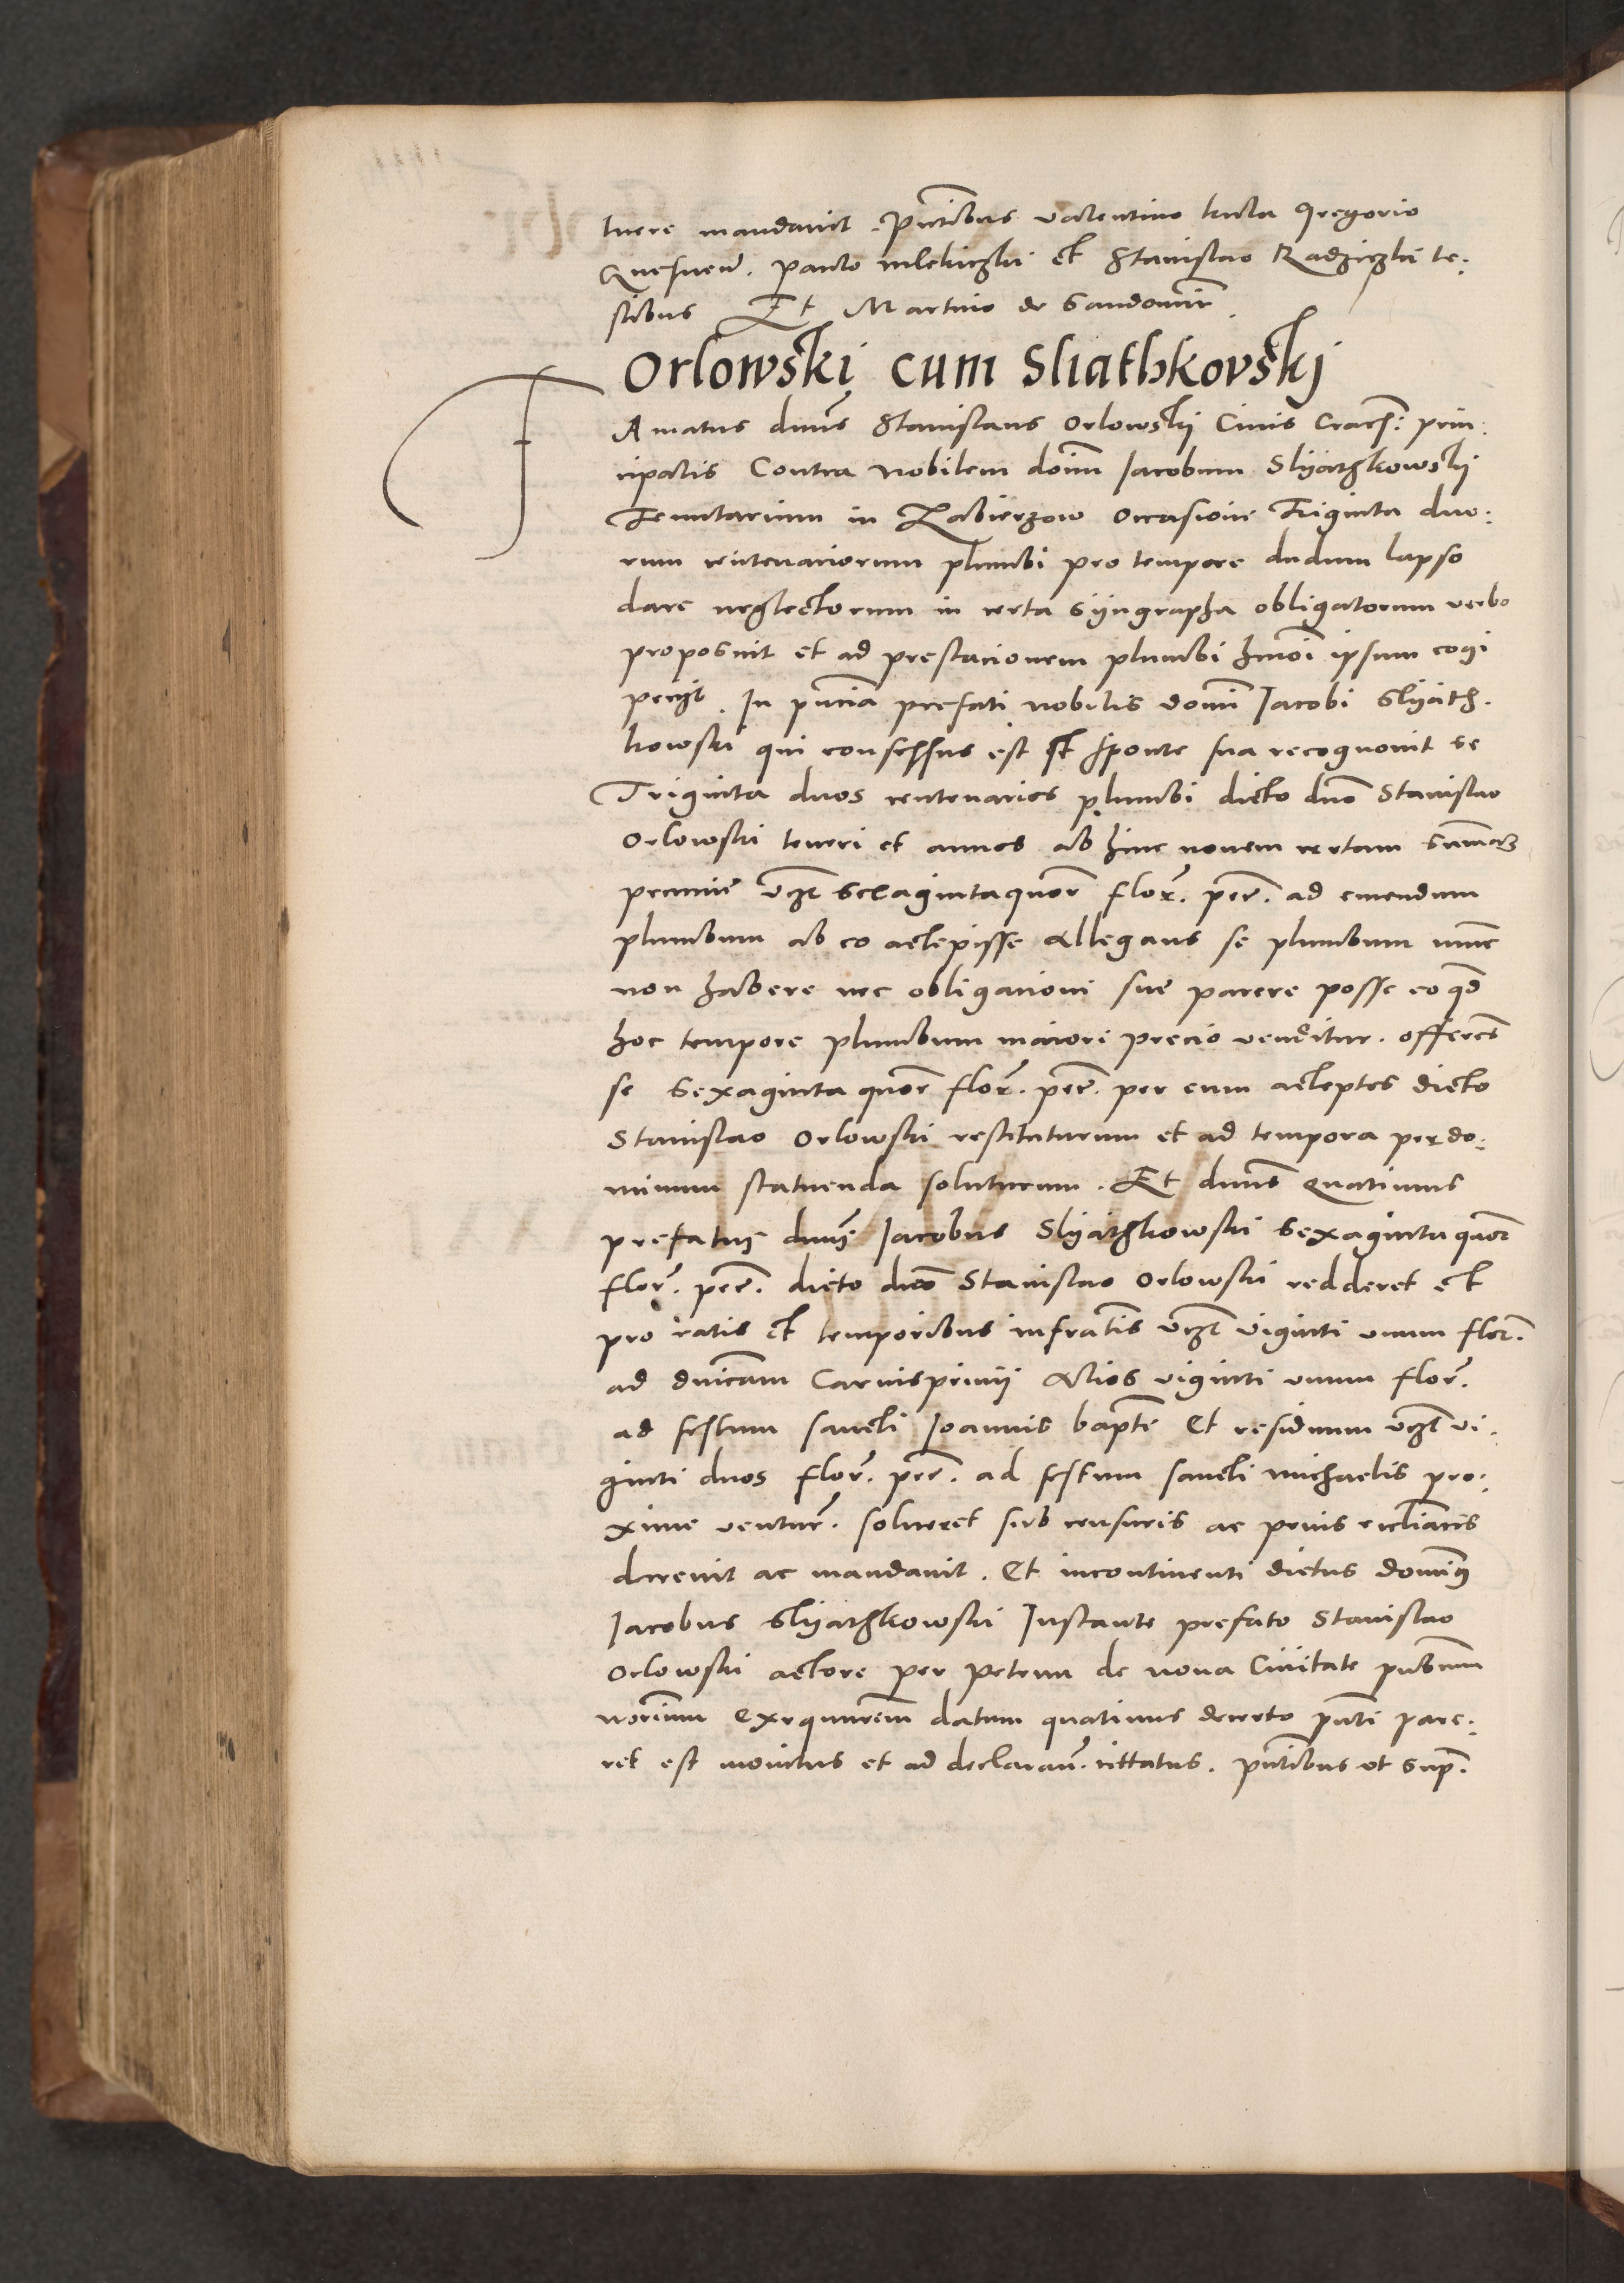 luere mandavit. Pntibus valentino kula Gregorio
Paulo mlekiczki et Stanislao Radziczki te¬
stibus Et Martino de Sandomir.
Orlowski cum Sliathkovski
Famatus dnus Stanislaus Orlowskij Civis Crac: prin¬
cipalis Contra nobilem doim Jacobum Slyathkowskij
Tenutarium in Zabierzow Occasione Triginta duo¬
rum centenariorum plumbi pro tempore dudum lapso
dare neglectorum in certa syngrapha obligatorum verbo
proposuit et ad prestacionem plumbi hmoi ipsum cogi
peciit. In pncia prefati nobilis domi Jacobi Slyath¬
kowski qui confessus est et sponte sua recognovit se
Triginta duos centenarios plumbi dicto dno Stanislao
Orlowski teneri et annos ab hinc novem certam summam
pecunie vzt sexagintaquor flor. per. ad emendum
plumbum ab eo accepisse Allegans se plumbum nunc
non habere nec obligacioni sue parere posse eo qd
hoc tempore plumbum maiori precio venditur. offerens
se Sexaginta quor flor. per. per eum acceptos dicto
Stanislao Orlowski restituturum et ad tempora per do¬
minum statuenda soluturum. Et dnus Quatinus
prefatus dnus Jacobus Slyathkowski sexaginta quor
flor. per. dicto dno Stanislao Orlowski redderet et
pro ratis et temporibus infratis vzt viginti unum flor.
ad dnicam Carnisprivii Alios viginti unum flor.
ad festum sancti Joannis bapte Et residuum vzt vi¬
ginti duos flor. per. ad festum sancti michaelis pro¬
xime ventur. solveret sub censuris ac penis eccliacis
decrevit ac mandavit. Et incontinenti dictus dominus
Jacobus Slyathkowski Instante prefato Stanislao
Orlowski actore per Petrum de nova Civitate pubcum
norium Exequucem datum quatinus decreto pnti pare¬
ret est monitus et ad declaran. cittatus. pntibus ut supr.